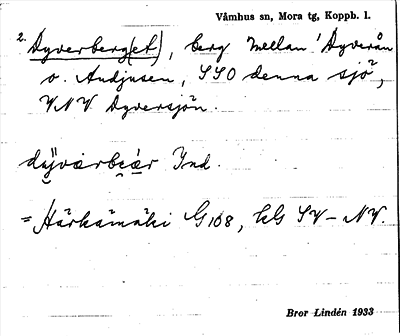 Våmhus sn, Mora tg, Koppb. l.
2. Dyverberg(et), berg mellan Dyverån
o. Andjusen, SSO denna sjö,
VNV Dyversjön.
dyvarbear Ind.
= Härkämäki G 108, kG SV – NV.
Bror Lindén 1933